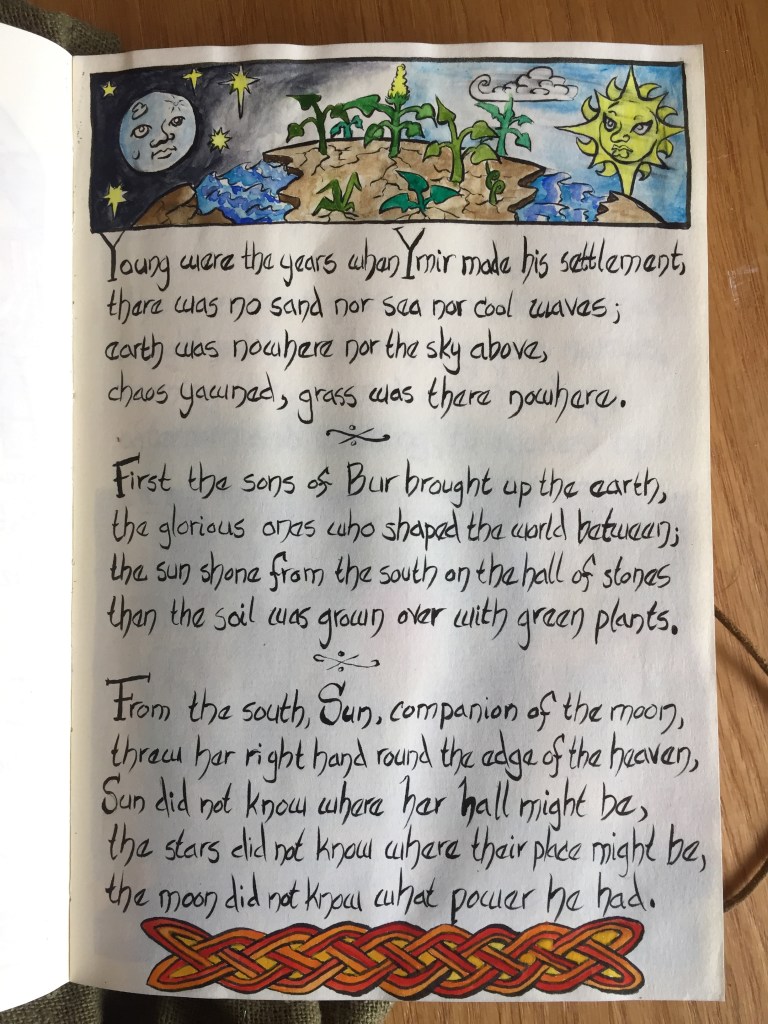 Young were the years when Ymir made his settlement,
there was no sand nor sea nor cool waves;
earth was nowhere nor the sky above,
chaos yawned, grass was there nowhere.
First the sons of Bur brought up the earth,
the glorious ones who shaped the world between;
the sun shone from the south on the hall of stones
then the soil was grown over with green plants.
From the south, Sun, companion of the moon,
threw her right hand round the edge of the heaven,
Sun did not know where her hall might be,
the stars did not know where their place might be,
the moon did not know what power he had.